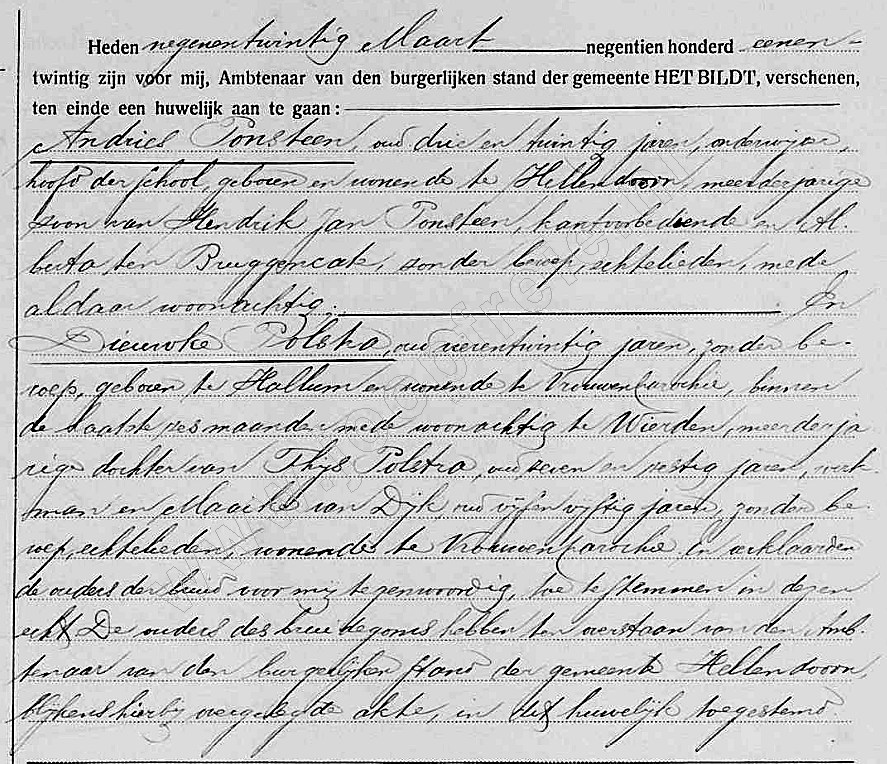 Heden negenentwintig Maart negentien honderd eenen-
twintig zijn voor mij, Ambtenaar van den burgerlijken stand der gemeente HET BILDT, verschenen,
ten einde een huwelijk aan te gaan:
Andries Ponsteen, oud drie en twintig jaren, onderwijzer,
hoofd der school, geboren en wonende te Hellendoorn, meerderjarige
zoon van Hendrik Jan Ponsteen, kantoorbediende en Al-
berta ten Bruggencate, zonder beroep, echtelieden, mede
aldaar woonachtig. En
Dieuwke Polstra, oud vierentwintig jaren, zonder be-
roep, geboren te Hallum en wonende te Vrouwenparochie, binnen
de laatste zes maanden mede woonachtig te Wierden, meerderja
rige dochter van Thijs Polstra, oud zeven en zestig jaren, werk-
man en Maaike van Dijk, oud vijfenvijftig jaren, zonder be-
roep, echtelieden, wonende te Vrouwenparochie, en verklaarden
de ouders der bruid voor mij tegenwoordig, toe te stemmen in dezen
echt. De ouders des bruidegoms hebben ten overstaan van den Amb-
tenaar van den burgerlijken stand der gemeente Hellendoorn,
blijkens hierbij overgelegde akte, in dit huwelijk toegestemd.